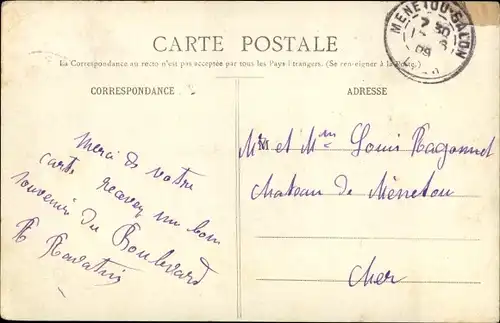 MENETOU-SALON
7 30
09
CARTE POSTALE
La Correspondance au recto n'est pas acceptée par tous les Pays étrangers. (Se renseigner à la Poste.)
CORRESPONDANCE
ADRESSE
Merci de votre
carte recevez un bon
souvenir du Boulevard
Mr et Mme Louis Ragonnet
Chateau de Ménetou
Cher